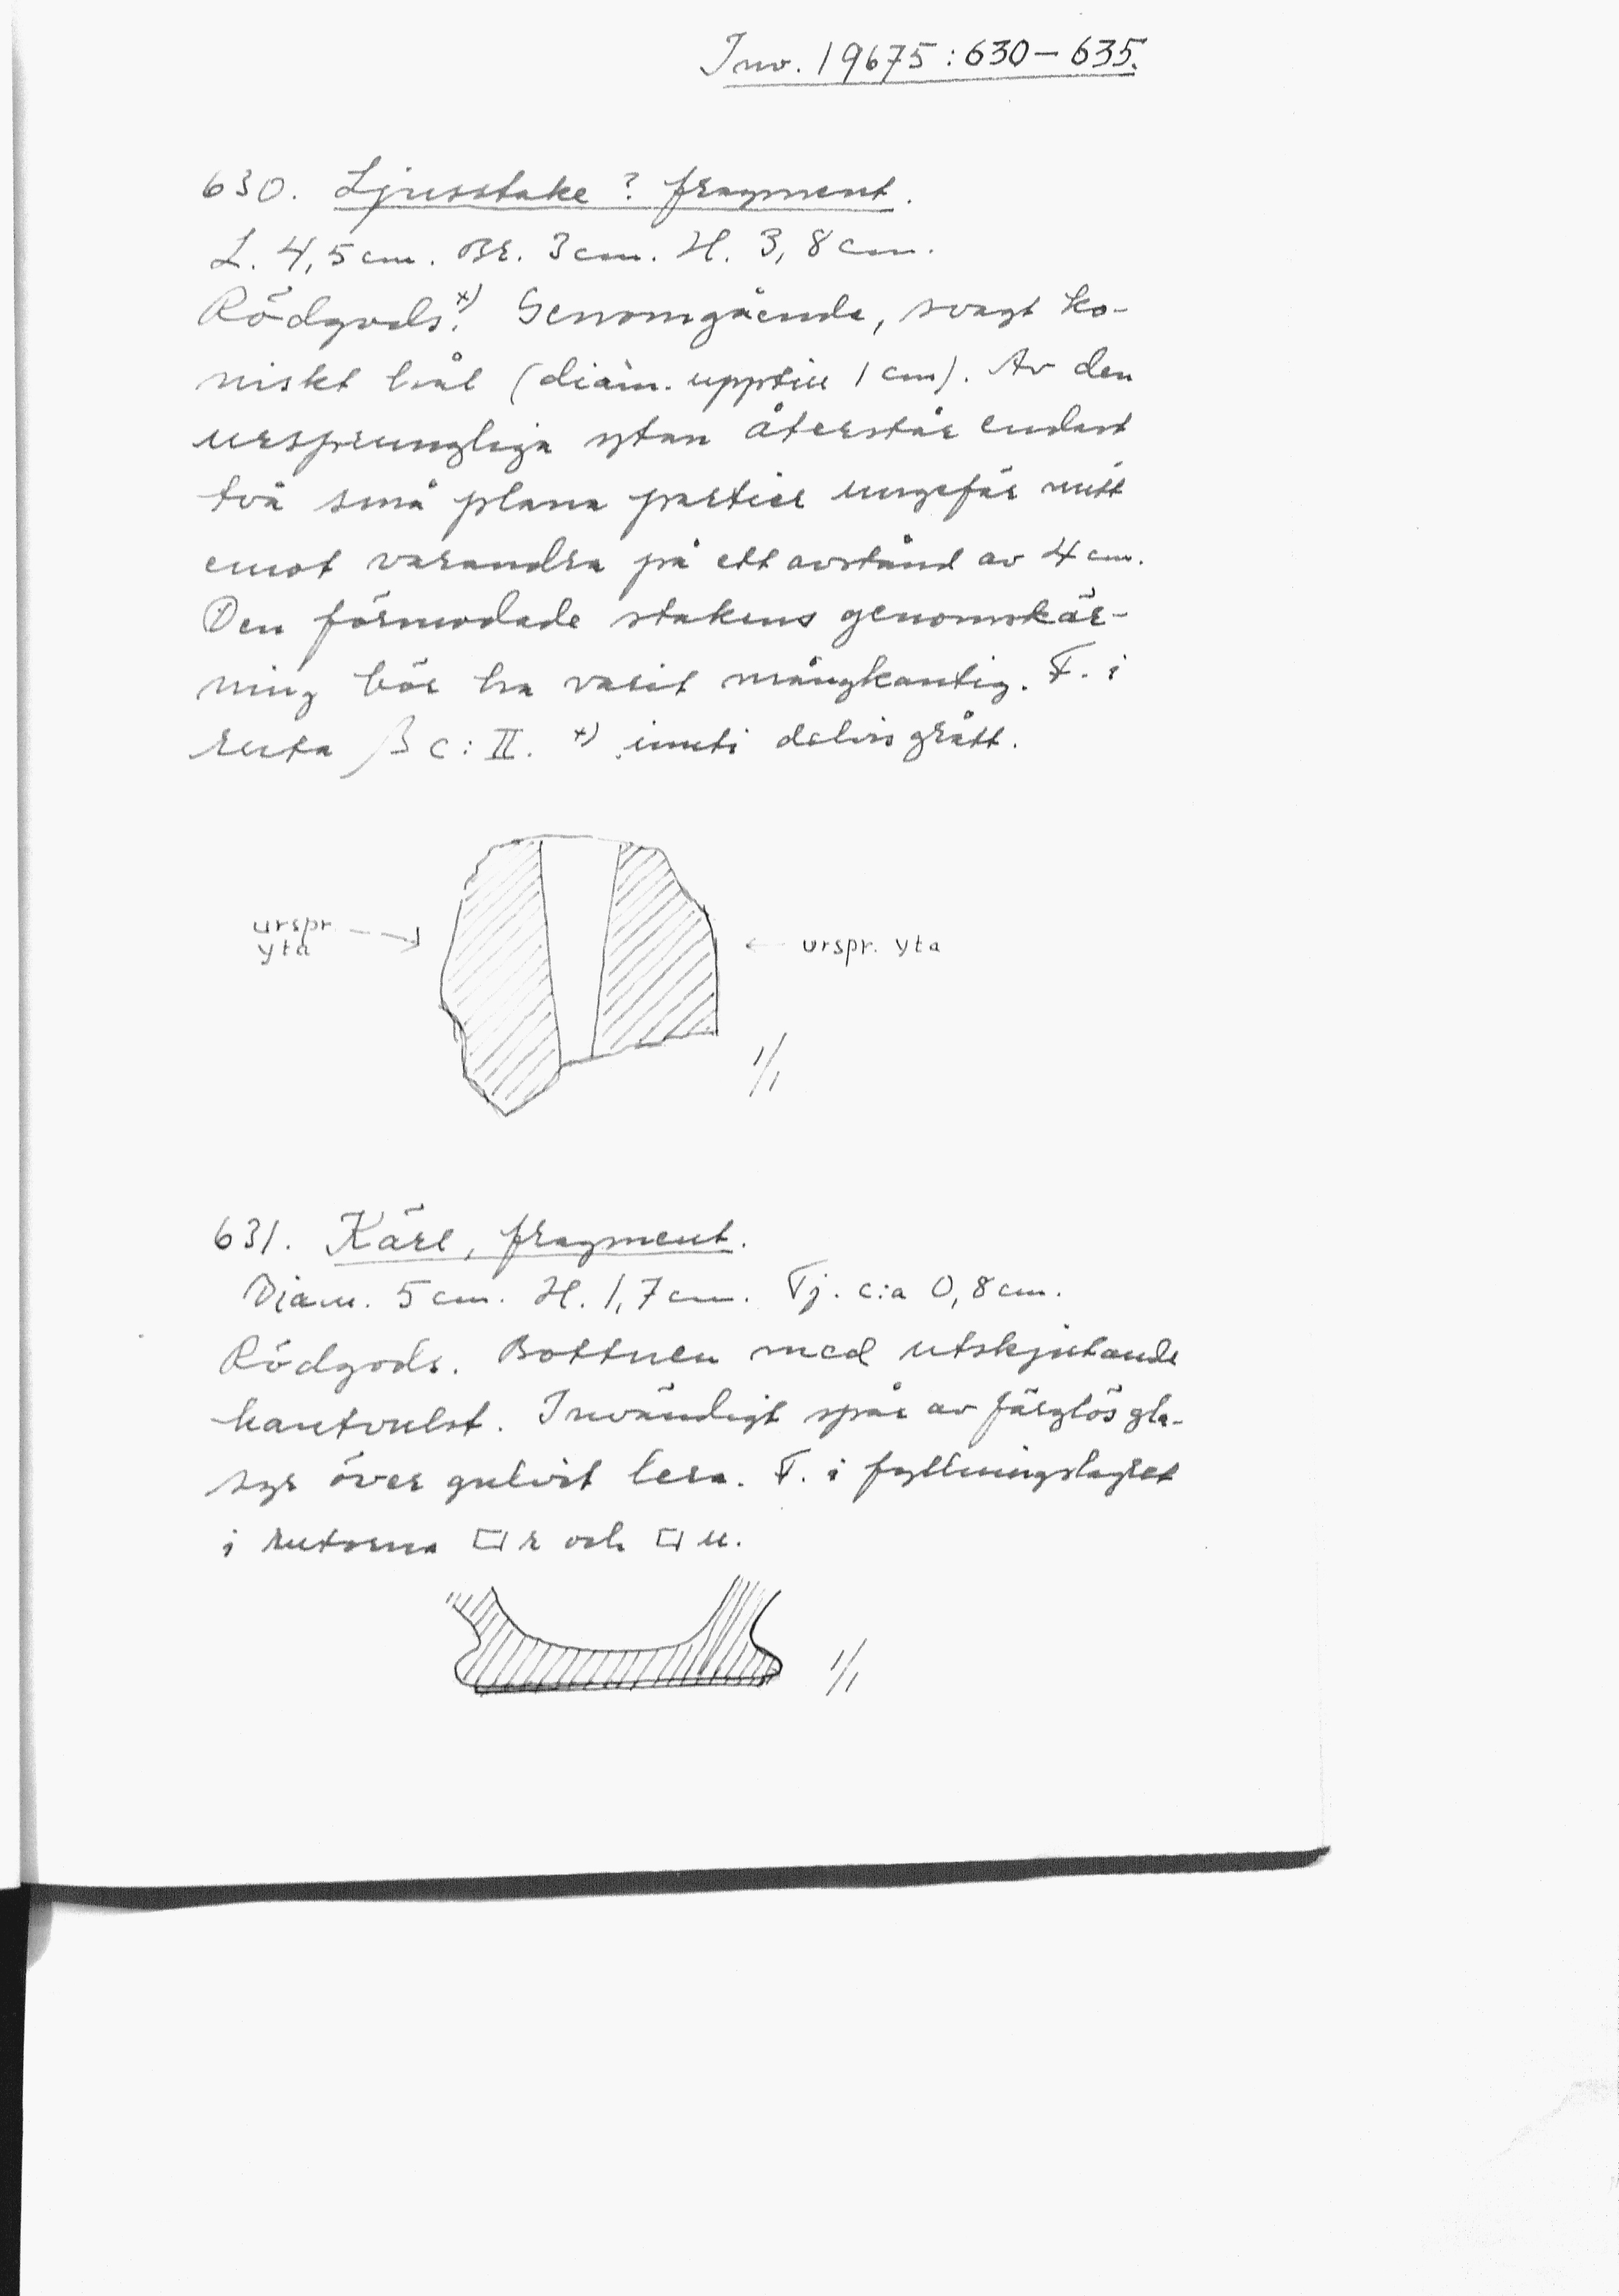 Inv. 19675:630–635.
630. Ljusstake? fragment.
L. 4,5 cm. Br. 3 cm. H. 3,8 cm.
Rödgods.x) Genomgående, svagt ko-
niskt hål (diam. upptill 1 cm). Av den
ursprungliga ytan återstår endast
två små plana partier ungefär mitt
emot varandra på ett avstånd av 4 cm.
Den förmodade stakens genomskär-
ning bör ha varit mångkantig. F. i
ruta β c: II. x) inuti delvis grått.
urspr. yta
urspr. yta
1/1
631. Kärl, fragment.
Diam. 5 cm. H. 1,7 cm. Tj. c:a 0,8 cm.
Rödgods. Bottnen med utskjutande
kantvulst. Invändigt spår av färglös gla-
syr över gulvit lera. F. i fyllningslagret
i rutorna □ r och □ u.
1/1